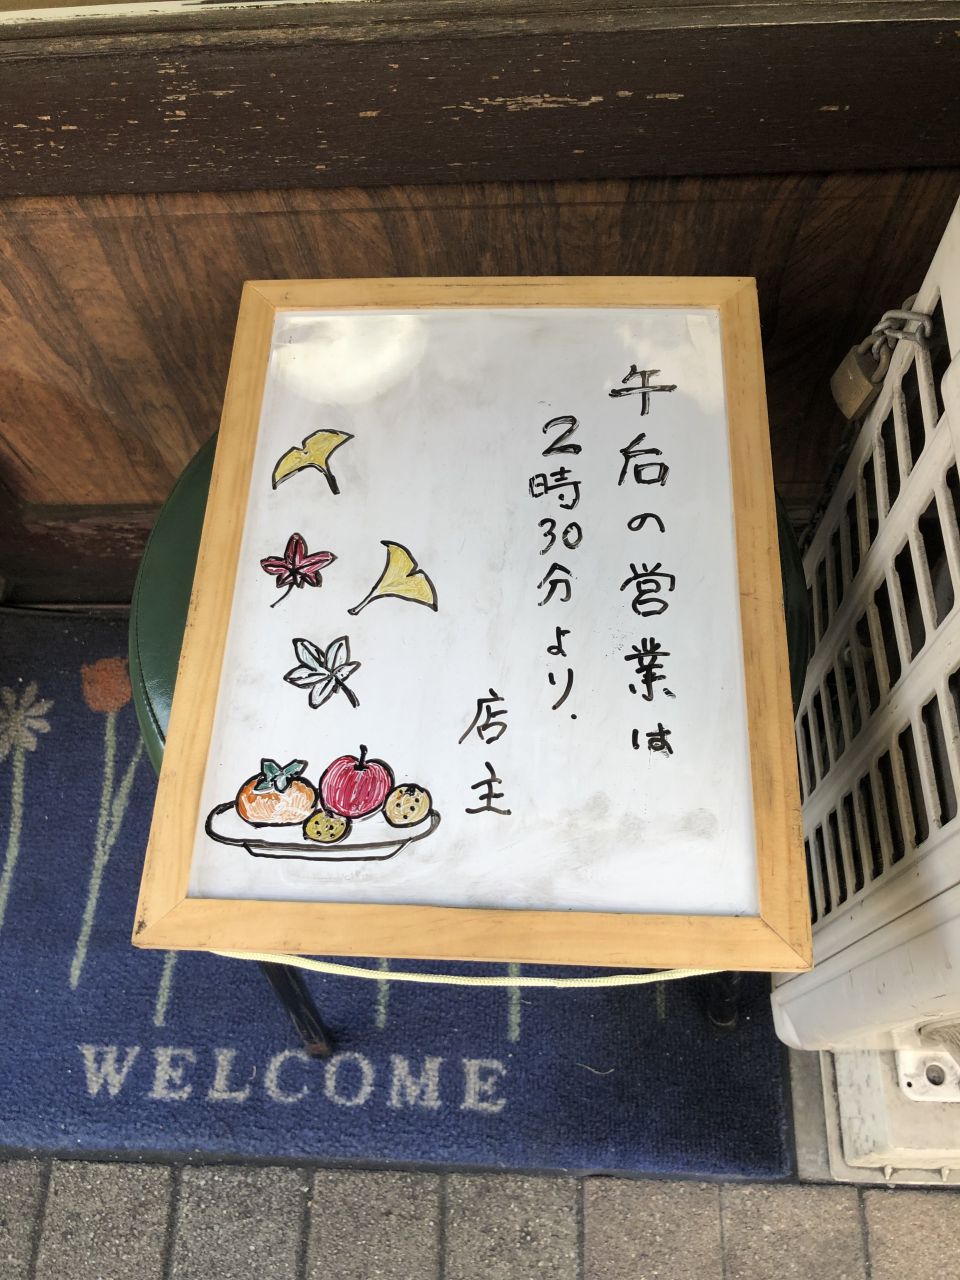 午后の営業は
2時30分より.
店主
WELCOME